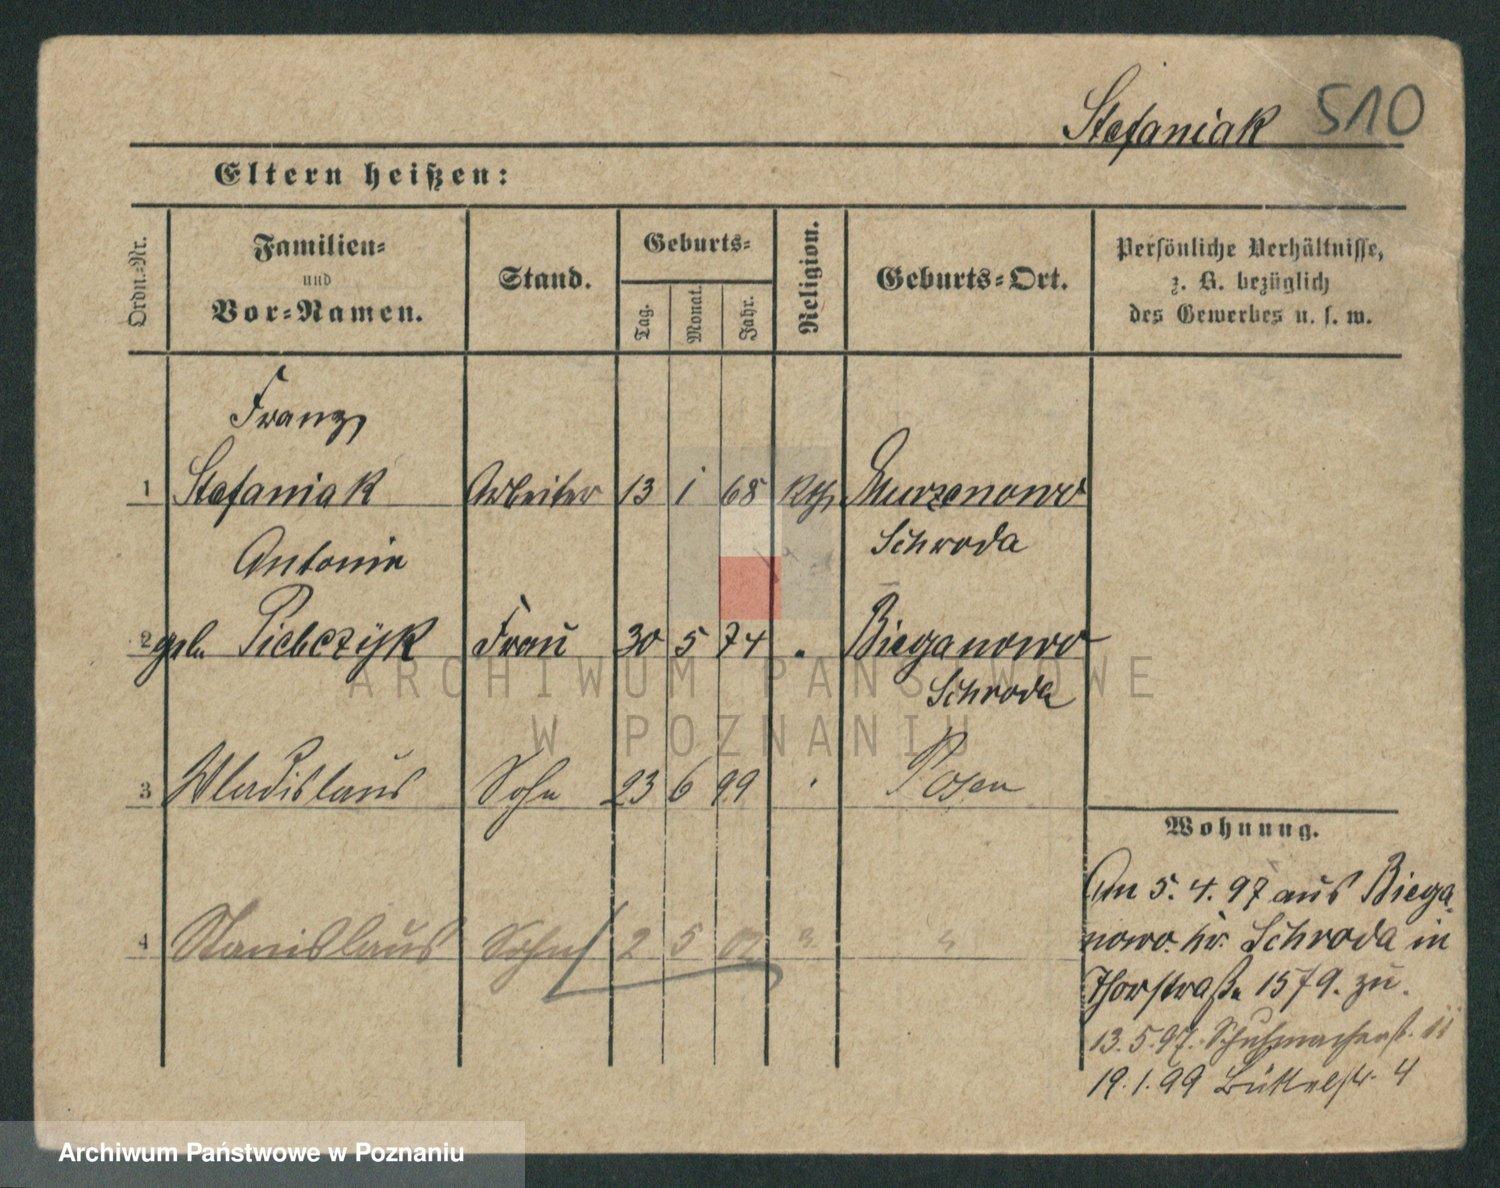 Stefaniak 510
Eltern heißen:
Ordn.-Nr.
Familien-
und
Vor-Namen.
Stand.
Geburts-
Tag.
Monat.
Jahr.
Religion.
Geburts-Ort.
Persönliche Verhältnisse,
z. B. bezüglich
des Gewerbes u. s. w.
Franz
1 Stefaniak Arbeiter 13 1 68 Kth. Murzenowo
Schroda
Antonie
2 geb. Frau 30 5 74 " Bieganowo
Schroda
3 Wladislaus Sohn 23 6 99 " Posen
4 Stanislaus Sohn 2 5 02 " "
Wohnung.
Am 5. 4. 97 aus Biega-
nowo Kr. Schroda in
Thorstraße 1579. zu.
13. 5. 97. Schuhmacherst. 11
19. 1. 99 Büttelstr. 4
ARCHIWUM PAŃSTWOWE
W POZNANIU
Archiwum Państwowe w Poznaniu